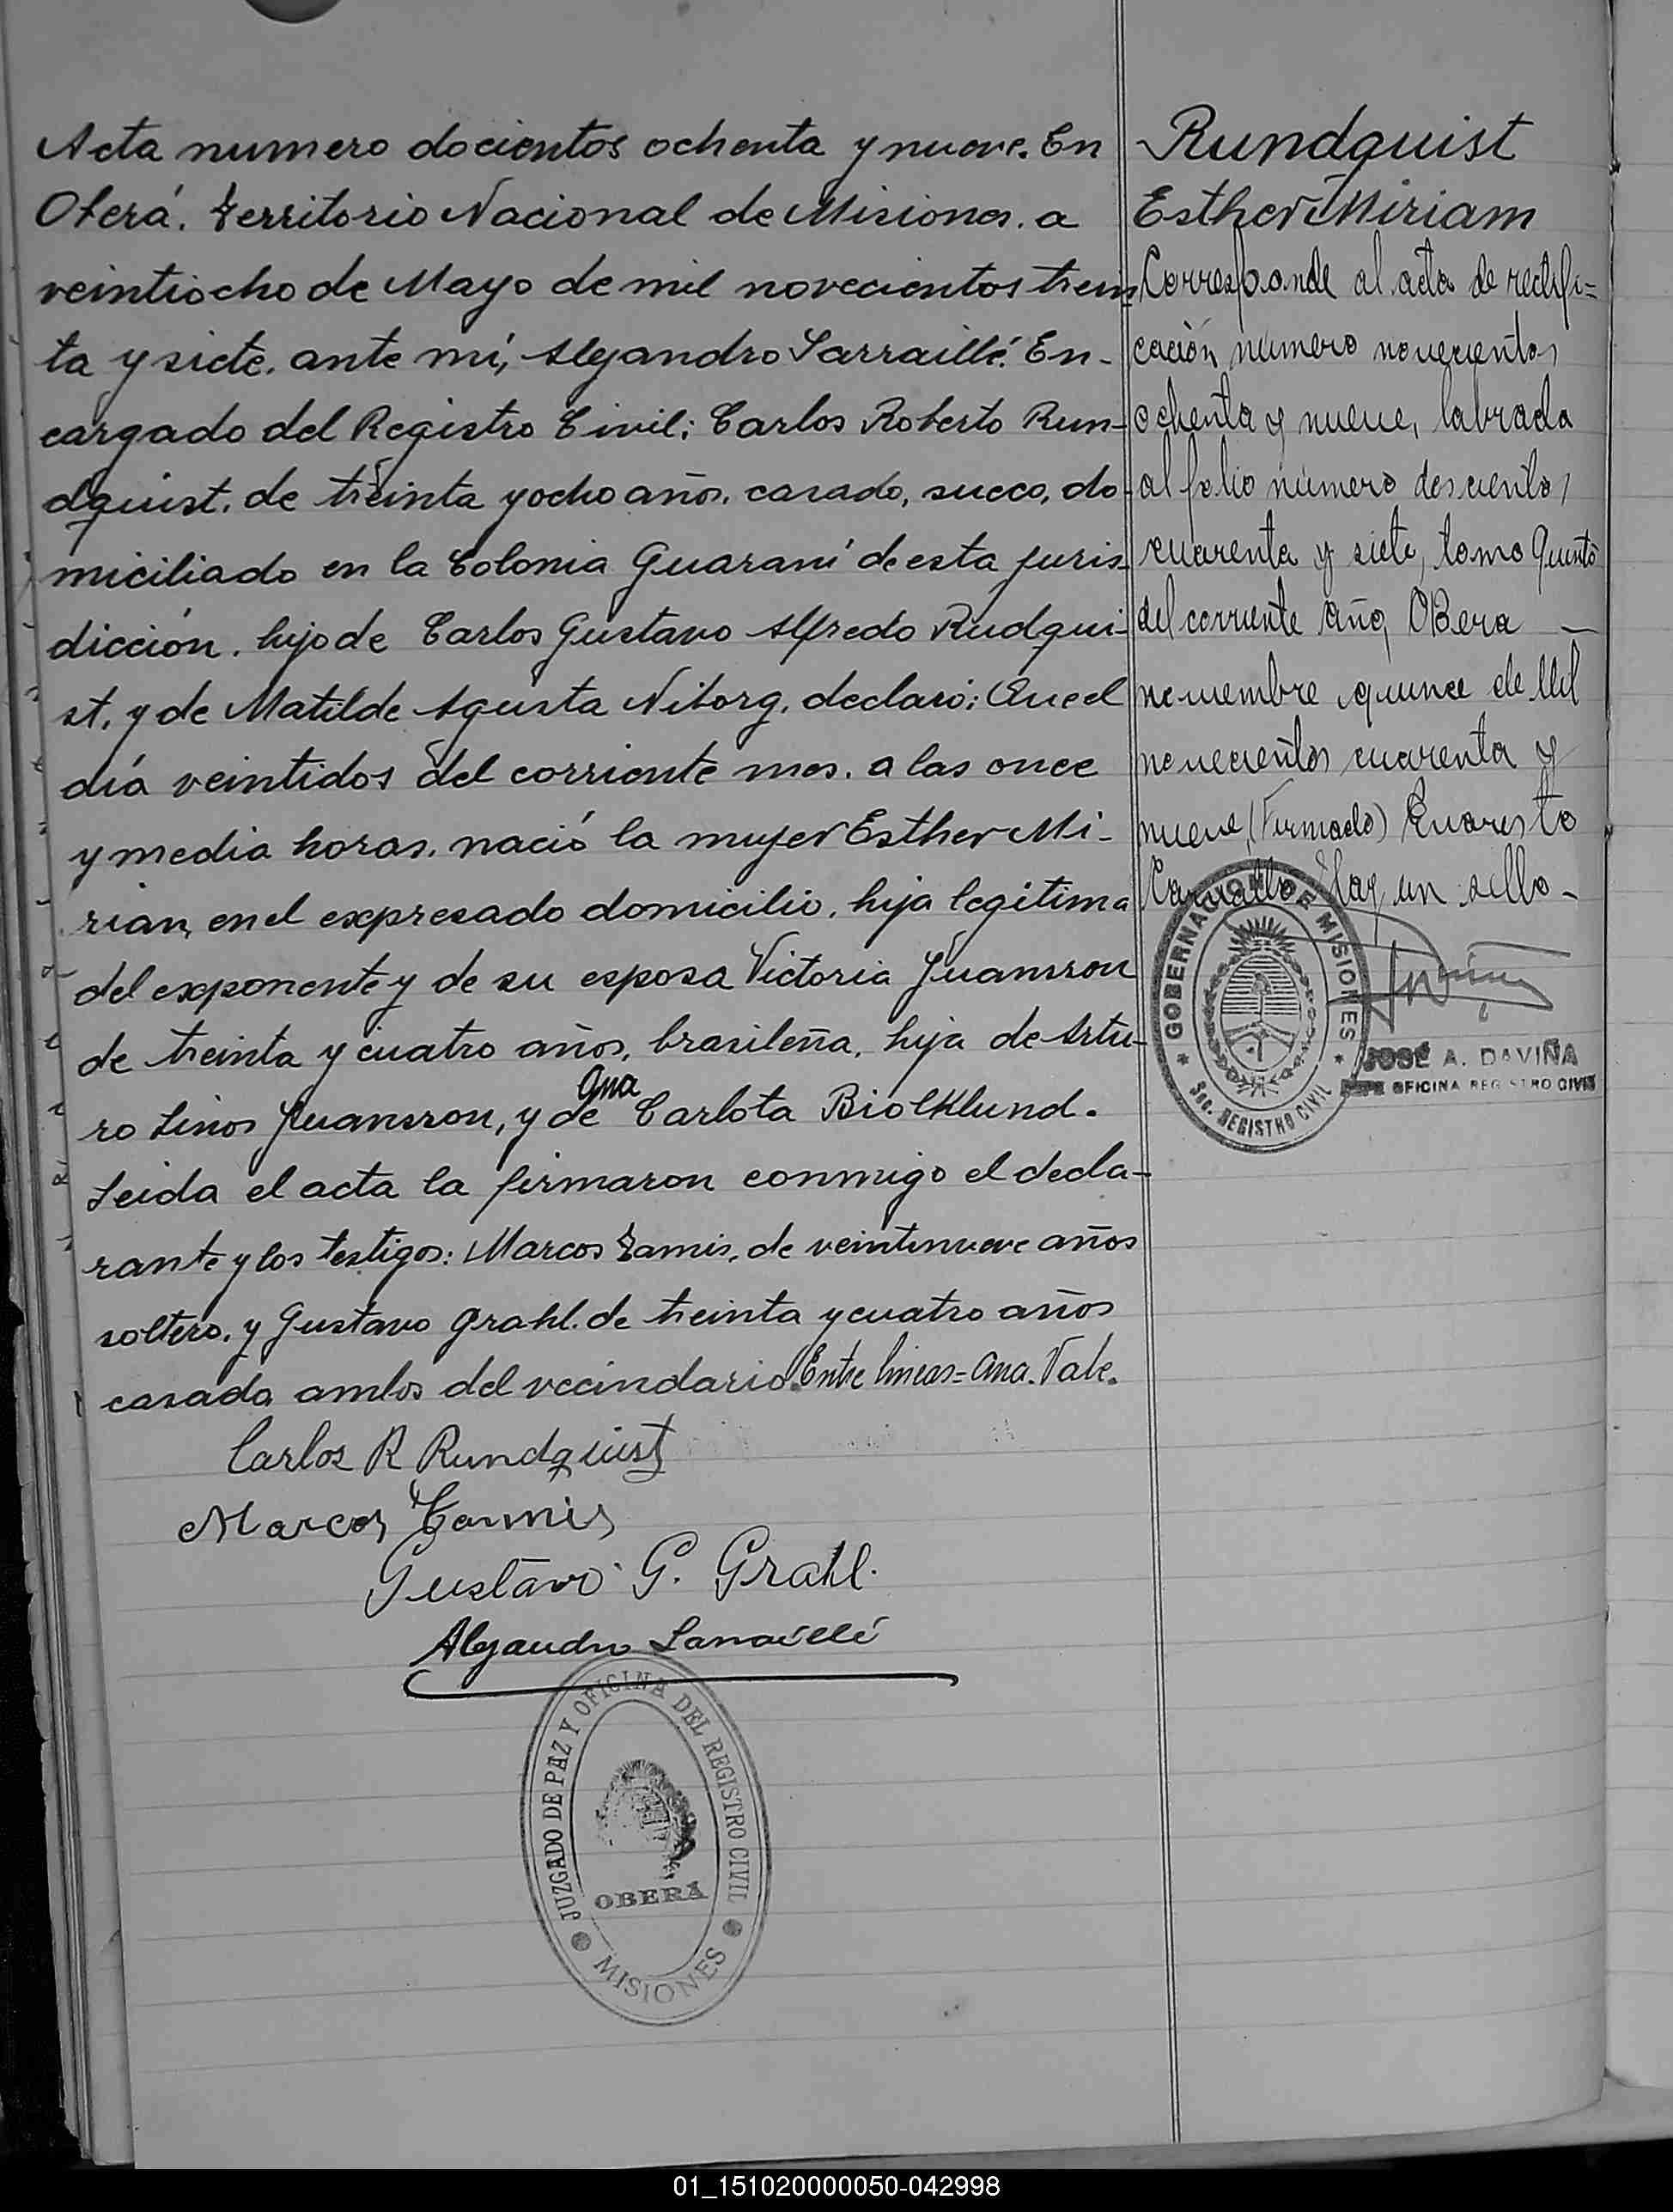 Acta numero docientos ochenta y nueve. En
Oberá. Territorio Nacional de Misiones. a
veintiocho de Mayo de mil novecientos trein
ta y siete. ante mí, Alejandro Larraillé. En-
cargado del Registro Civil; Carlos Roberto Run-
dquist. de treinta y ocho años. casado, sueco, do-
miciliado en la Colonia Guaraní de esta juris-
dicción. hijo de Carlos Gustavo Alfredo Rudqui-
st. y de Matilde Agusta Niborg. declaró: Que el
día veintidos del corriente mes. a las once
y media horas. nació la mujer Esther Mi-
rian, en el expresado domicilio. hija legítima
del exponente y de su esposa Victoria Juansson
de treinta y cuatro años, brasileña, hija de Artu-
ro Linos Juansson, y de Ana Carlota Biolklund.
Leida el acta la firmaron conmigo el decla-
rante y los testigos: Marcos Tamis, de veintinueve años
soltero. y Gustavo Grahl. de treinta y cuatro años
casado ambos del vecindario. Entre lineas=Ana. Vale.
Carlos R Rundquist
Marcos
Gustavo G. Grahl.
Alejandro Larraillé
JUZGADO DE PAZ Y OFICINA DEL REGISTRO CIVIL
OBERÁ
MISIONES
Rundquist
Esther Miriam
Corresponde al acta de rectifi=
cación número novecientos
ochenta y nueve, labrada
al folio número doscientos
cuarenta y siete, tomo Quinto
del corriente año, OBera —
noviembre quince de Mil
novecientos cuarenta y
nueve, (Firmado) Evaristo
Hay un sello-
GOBERNACION DE MISIONES
Sec. REGISTRO CIVIL
JOSÉ A. DAVIÑA
JEFE OFICINA REGISTRO CIVIL
01_151020000050-042998